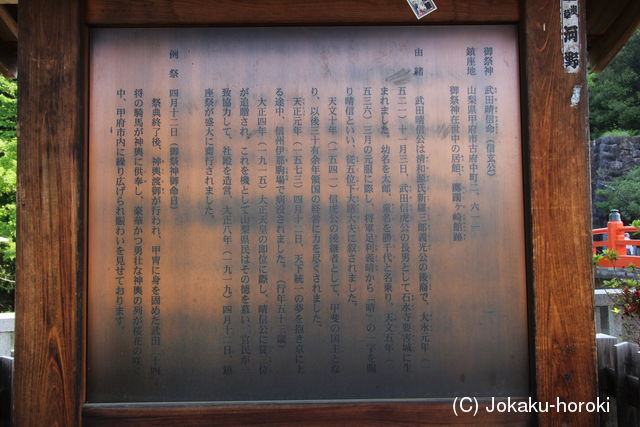 御祭神　武田晴信命（信玄公）
鎮座地　山梨県甲府市古府中町二、六一一
御祭神在世中の居館、躑躅ヶ崎館跡
由緒　武田晴信公は清和源氏新羅三郎義光公の後裔で、大永元年（一
五二一）十一月三日、武田信虎公の長男として石水寺要害城に生
まれました。幼名を太郎、童名を勝千代と名乗り、天文五年（一
五三六）三月の元服に際し、将軍足利義晴から「晴」の一字を賜
り晴信といい、従五位下大膳大夫に叙せられました。
天文十年（一五四一）信虎公の後継者として、甲斐の国主とな
り、以後三十有余年領国の経営に力を尽くされました。
天正元年（一五七三）四月十二日、天下統一の夢を抱き京に上
る途中、信州伊那駒場で病没されました。（行年五十三歳）
大正四年（一九一五）大正天皇の即位に際し、晴信公に従三位
が追贈され、これを機として山梨県民はその徳を慕い、官民が一
致協力して、社殿を造営、大正八年（一九一九）四月十二日、鎮
座祭が盛大に斎行されました。
例祭　四月十二日（御祭神御命日）
祭典終了後、神輿渡御が行われ、甲冑に身を固めた武田二十四
将の騎馬が神輿に供奉し、豪華かつ勇壮な神輿の列が桜花の咲く
中、甲府市内に繰り広げられ賑わいを見せております。
河野
(C) Jokaku-horoki